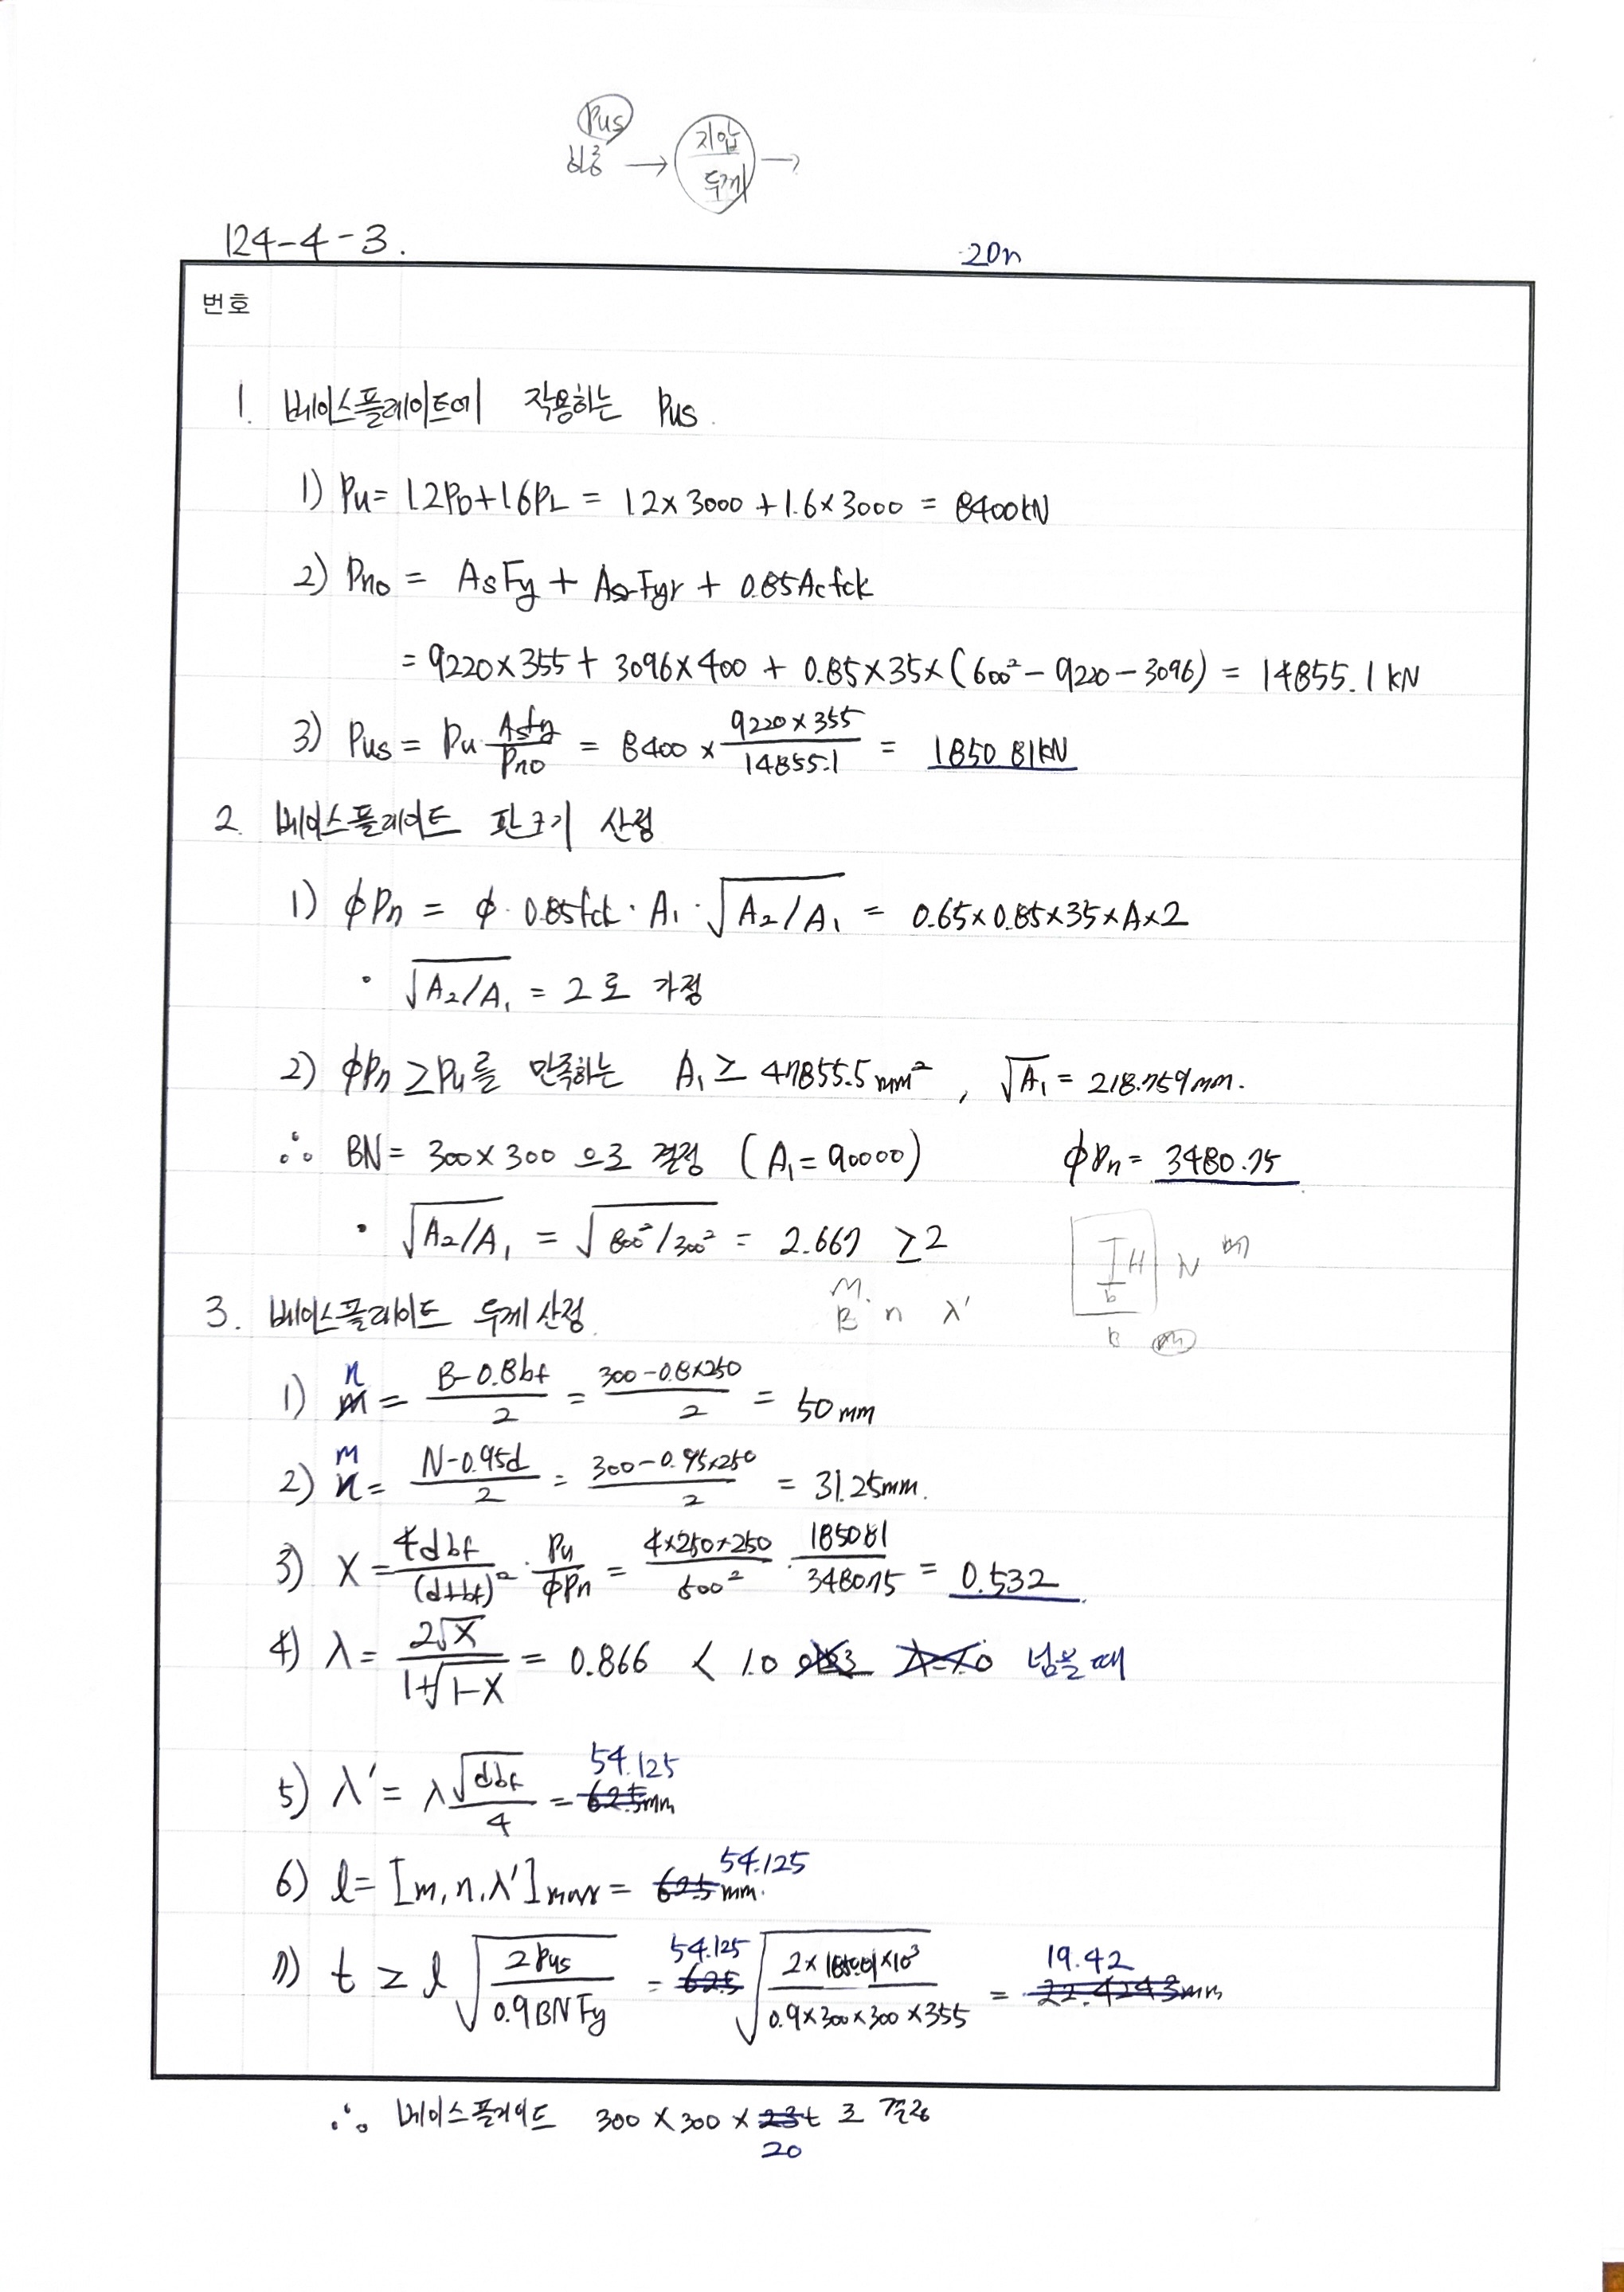 Pus
하중 → 지압 두께 →
124-4-3.
20n
번호
1. 베이스플레이트에 작용하는 Pus.
1) Pu = 1.2PD+1.6PL = 1.2×3000+1.6×3000 = 8400kN
2) Pno = AsFy + AsrFyr + 0.85Acfck
= 9220×355 + 3096×400 + 0.85×35×(600²-9220-3096) = 14855.1 kN
3) Pus = Pu · Asfy/Pno = 8400 × 9220×355/14855.1 = 1850.81kN
2. 베이스플레이트 판크기 산정
1) ϕPn = ϕ·0.85fck·A₁·√A₂/A₁ = 0.65×0.85×35×A×2
· √A₂/A₁ = 2로 가정
2) ϕPn ≥ Pu를 만족하는 A₁ ≥ 47855.5mm², √A₁ = 218.759mm.
∴ BN = 300×300 으로 결정 (A₁=90000) ϕPn = 3480.75
· √A₂/A₁ = √800²/300² = 2.667 ≥ 2
I H N m
b
B n
m.
B n λ'
3. 베이스플레이트 두께산정.
1) n m = B-0.8bf/2 = 300-0.8×250/2 = 50mm
2) m n = N-0.95d/2 = 300-0.95×250/2 = 31.25mm.
3) X = 4dbf/(d+bf)² · Pu/ϕPn = 4×250×250/500² · 1850.81/3480.75 = 0.532.
4) λ = 2√X/1+√1-X = 0.866 < 1.0 넘을 때
5) λ' = λ√dbf/4 = 62.5mm 54.125
6) l = [m, n, λ']max = 62.5mm. 54.125
7) t ≥ l √2Pus/0.9BNFy = 62.5 54.125 √2×1850.81×10³/0.9×300×300×355 = 22.4243mm 19.42
∴ 베이스플레이트 300×300×23t로 결정
20